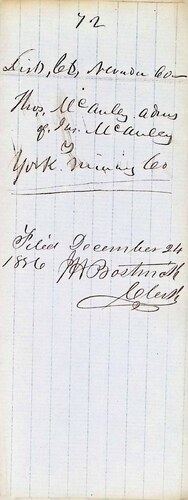 72
Dist, Ct, Nevada Co
Thos, McAuley admr
of Jas. McAuley
vs
York Mining Co
Filed December 24
1856 J H Bostwick
Clerk